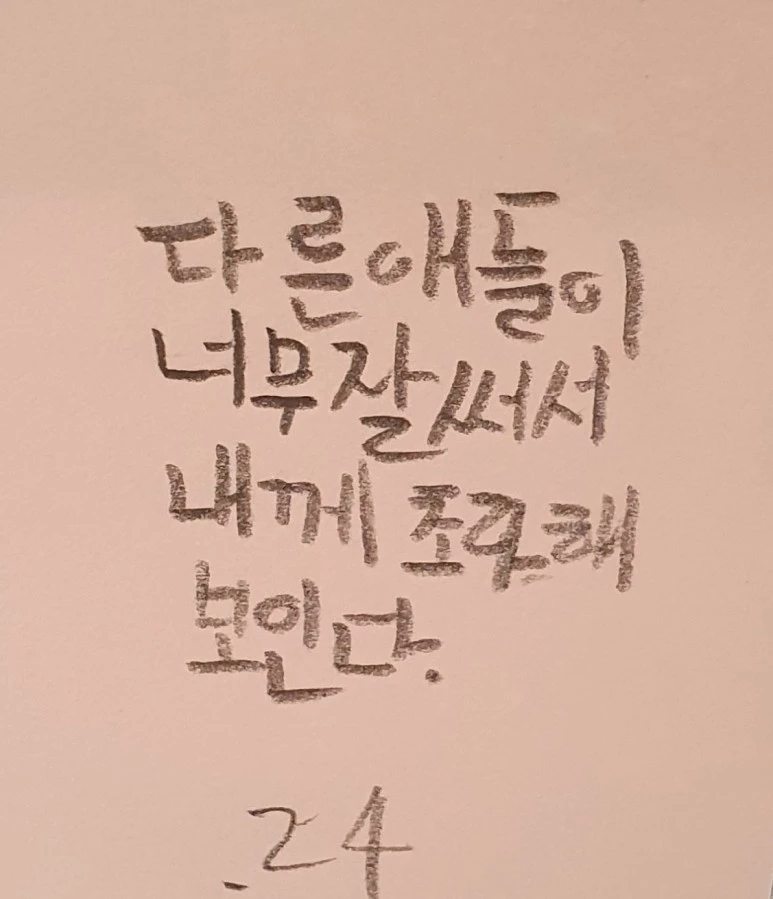 다른애들이
너무잘써서
내께 조구해
보인다.
.24